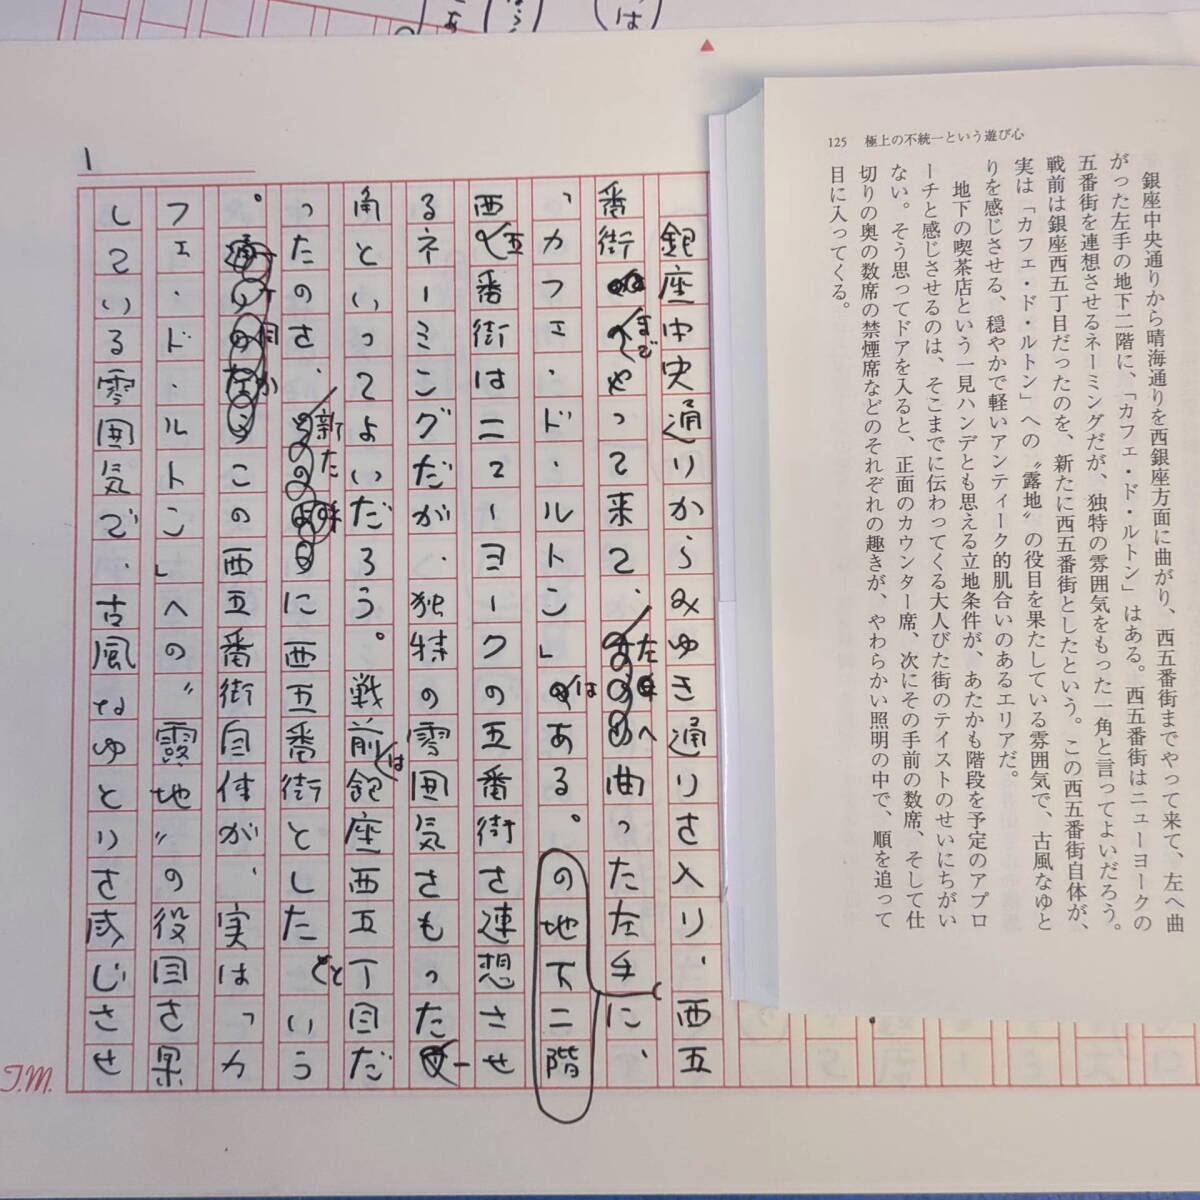 125 極上の不統一という遊び心
銀座中央通りから晴海通りを西銀座方面に曲がり、西五番街までやって来て、左へ曲
がった左手の地下二階に、「カフェ・ド・ルトン」はある。西五番街はニューヨークの
五番街を連想させるネーミングだが、独特の雰囲気をもった一角と言ってよいだろう。
戦前は銀座西五丁目だったのを、新たに西五番街としたという。この西五番街自体が、
実は「カフェ・ド・ルトン」への〝露地〟の役目を果たしている雰囲気で、古風なゆと
りを感じさせる、穏やかで軽いアンティーク的肌合いのあるエリアだ。
地下の喫茶店という一見ハンデとも思える立地条件が、あたかも階段を予定のアプロ
ーチと感じさせるのは、そこまでに伝わってくる大人びた街のテイストのせいにちがい
ない。そう思ってドアを入ると、正面のカウンター席、次にその手前の数席、そして仕
切りの奥の数席の禁煙席などのそれぞれの趣きが、やわらかい照明の中で、順を追って
目に入ってくる。
1
銀座中央通りからみゆき通りを入り、西五
番街までやって来て、左へ曲った左手に、
「カフェ・ド・ルトン」はある。の地下二階
西五番街はニューヨークの五番街を連想させ
るネーミングだが、独特の雰囲気をもった一
角といってよいだろう。戦前は銀座西五丁目だ
ったのを、新たに西五番街としたという
。この西五番街自体が、実は「カ
フェ・ド・ルトン」への〝露地〟の役目を果
している雰囲気で、古風なゆとりを感じさせ
T.M.